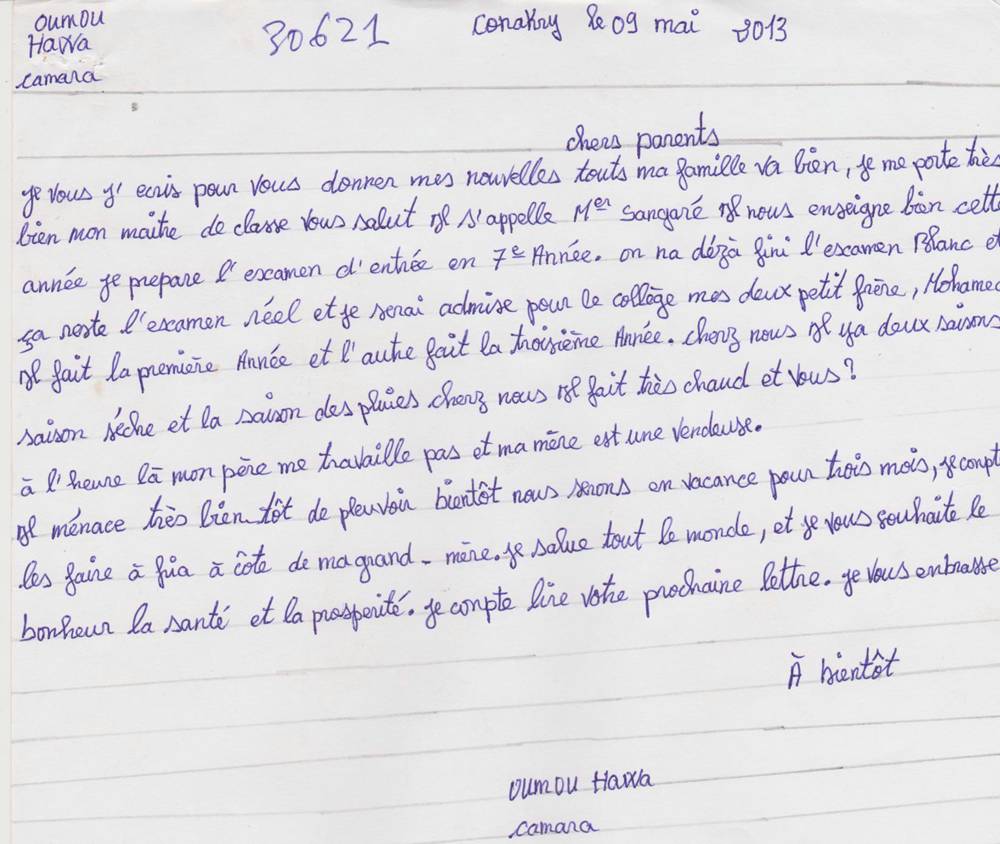 OUMOU
HaWa
camara
30621
Conakry le 09 mai 2013
chers parents
je vous y' ecris pour vous donner mes nouvelles touts ma famille va bien, je me porte très
bien mon maître de classe vous salut il s'appelle Mer Sangaré il nous enseigne bien cette
année je prepare l'escamen d'entrée en 7e Année. on na dézà fini l'escamen Blanc et
ça reste l'escamen réel et je serai admise pour le collège mes deux petit frère, Mohamed
il fait la première Année et l'autre fait la troisième Année. cherz nous il ya deux saisons
saison sèche et la saison des pluies cherz nous il fait très chaud et vous?
à l'heure là mon père me travaille pas et ma mère est une vendeuse.
il ménace très bien tôt de pleuvoir bientôt nous serons en vacance pour trois mois, je compt
les faire à fria à côte de ma grand-mère. je salue tout le monde, et je vous souhaite le
bonheur la santé et la prosperité. je conpte lire votre prochaine lettre. je vous enbrasse
À bientôt
OUMOU Hawa
camara